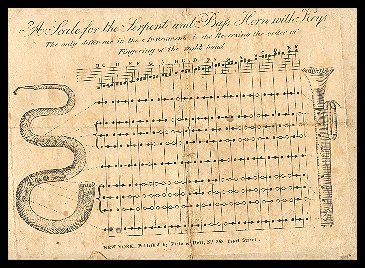 A Scale for the Serpent and Bass Horn with Keys
The only difference in the Instruments is the Reversing the order of
Fingering of the right hand
NEW YORK, Published by Firth & Hall, No
Pearl Street.